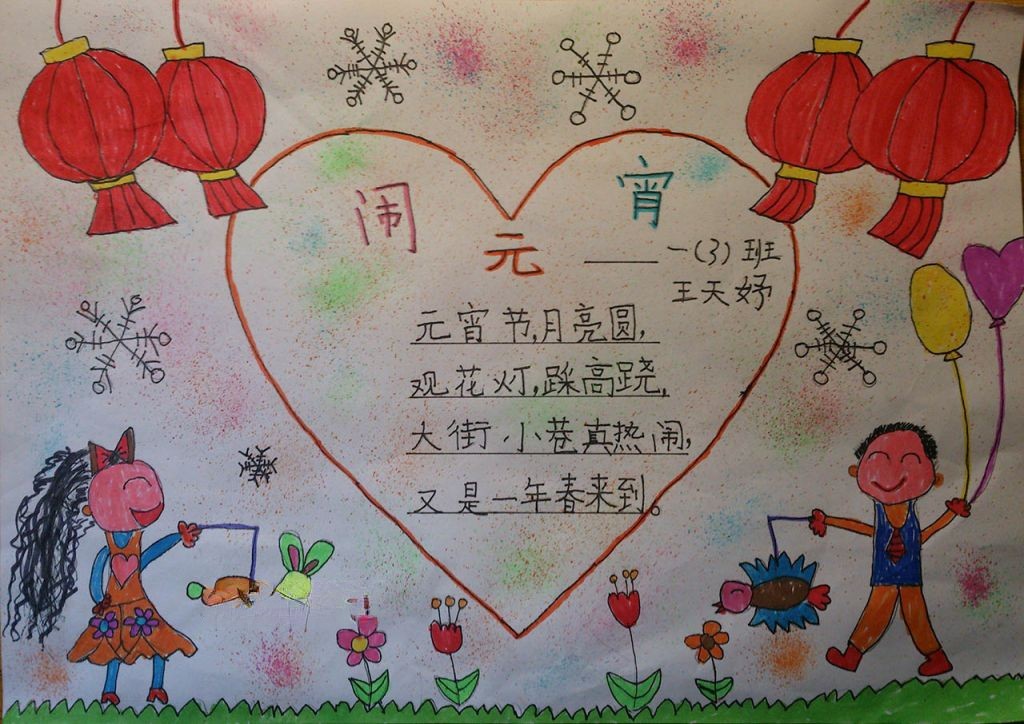 闹元宵
——一(3)班
王天妤
元宵节,月亮圆,
观花灯,踩高跷,
大街小巷真热闹,
又是一年春来到。